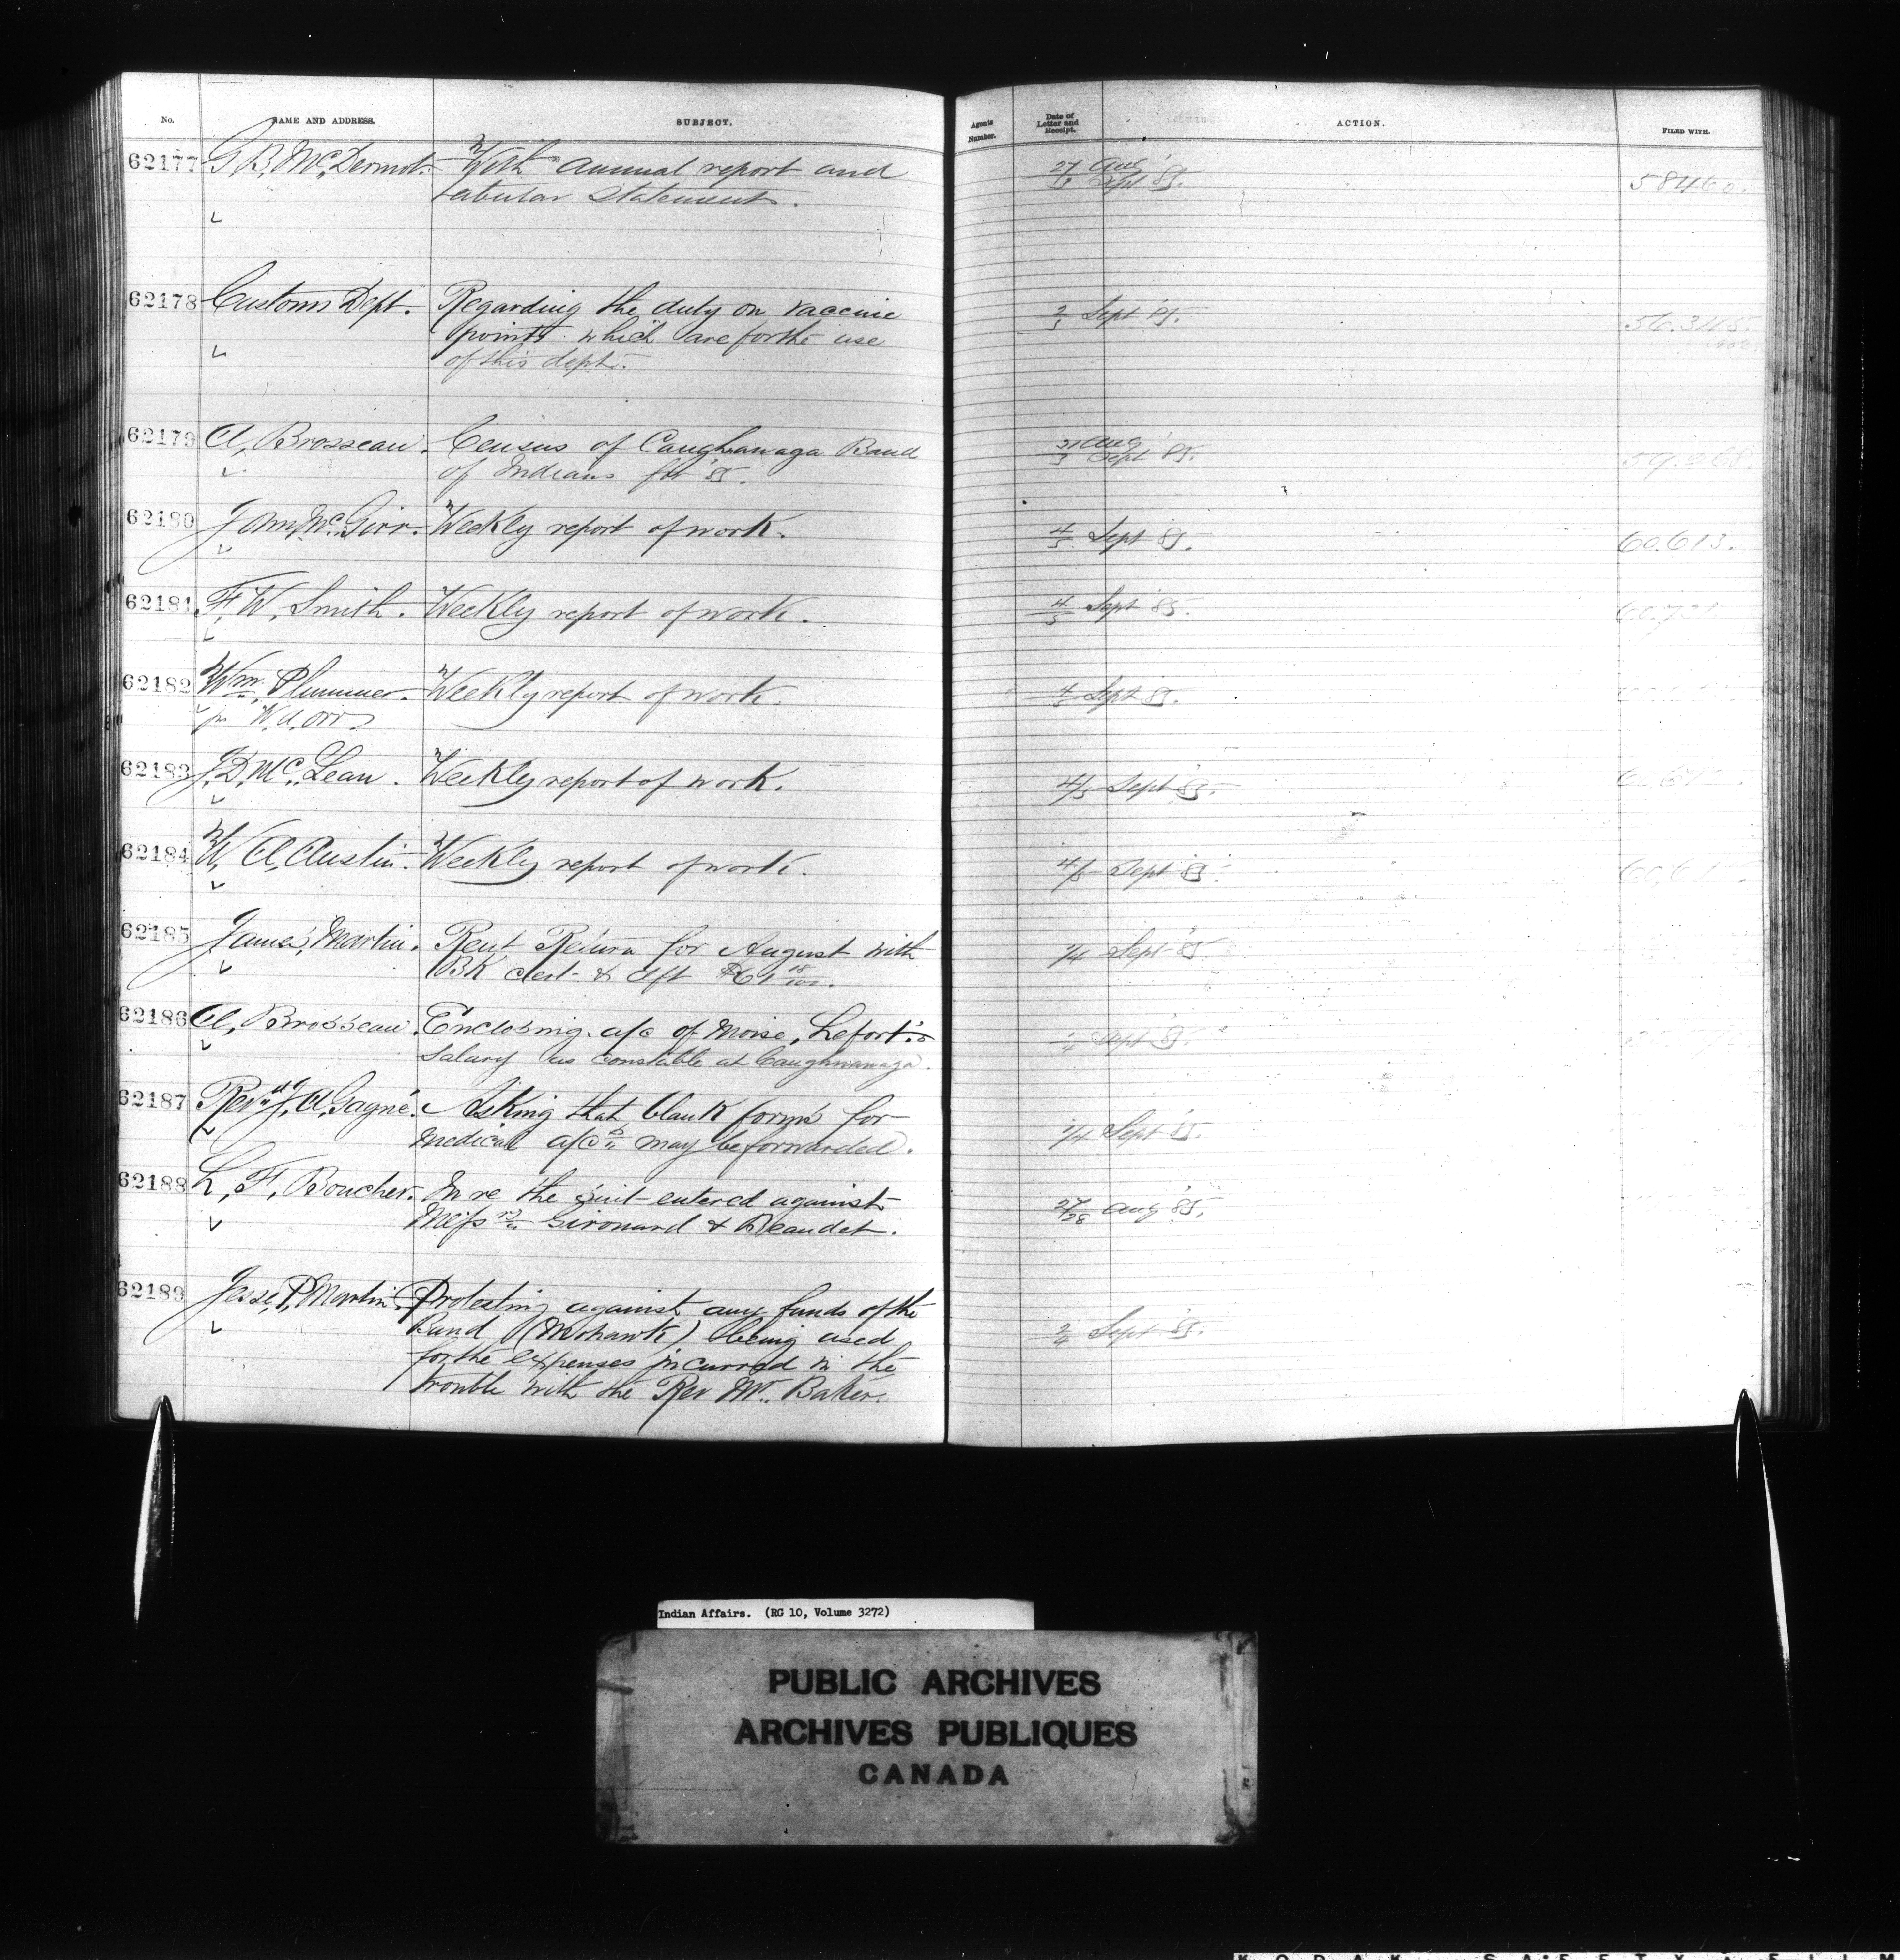 No. NAME AND ADDRESS. SUBJECT. Agents Number. Date of Letter and Receipt. ACTION. FILED WITH.
62177 G. B. McDermot. With annual report and 27 Aug
tabular statement. Sept '85. 58460.
62178 Customs Dept. Regarding the duty on vaccine 2/3 Sept 85.
points which are for the use
of this dept.
62179 A. Brosseau. Census of Caughnawaga Band 31 Aug
of Indians for '85. 3 Sept '85.
62180 John McGirr. Weekly report of work. 4/5 Sept 85. 60.613.
62181 F. W. Smith. Weekly report of work. 4/5 Sept '85.
62182 Wm. Plummer. Weekly report of work. Sept 85.
pr W. A. Orr
62183 J. D. McLean. Weekly report of work. 4/5 Sept 85.
62184 W. A. Austin. Weekly report of work. 4/5 Sept 85.
62185 James Martin. Rent Return for August with /4 Sept 85
Bk cert & dft $61 18/100.
62186 A. Brosseau. Enclosing a/c of Moise Lefort's Sept 85.
Salary as constable at Caughnawaga.
62187 Revd J. A. Gagné. Asking that blank forms for
medical a/cs may be forwarded. /4 Sept 85.
62188 L. F. Boucher. In re the suit entered against 27/28 Aug 85.
Messrs Girouard & Beaudet.
62189 Jesse P. Martin. Protesting against any funds of the
Band (Mohawk) being used 2/4 Sept 85.
for the expenses incurred in the
trouble with the Rev Mr. Baker.
Indian Affairs. (RG 10, Volume 3272)
PUBLIC ARCHIVES
ARCHIVES PUBLIQUES
CANADA
KODAK SAFETY FILM